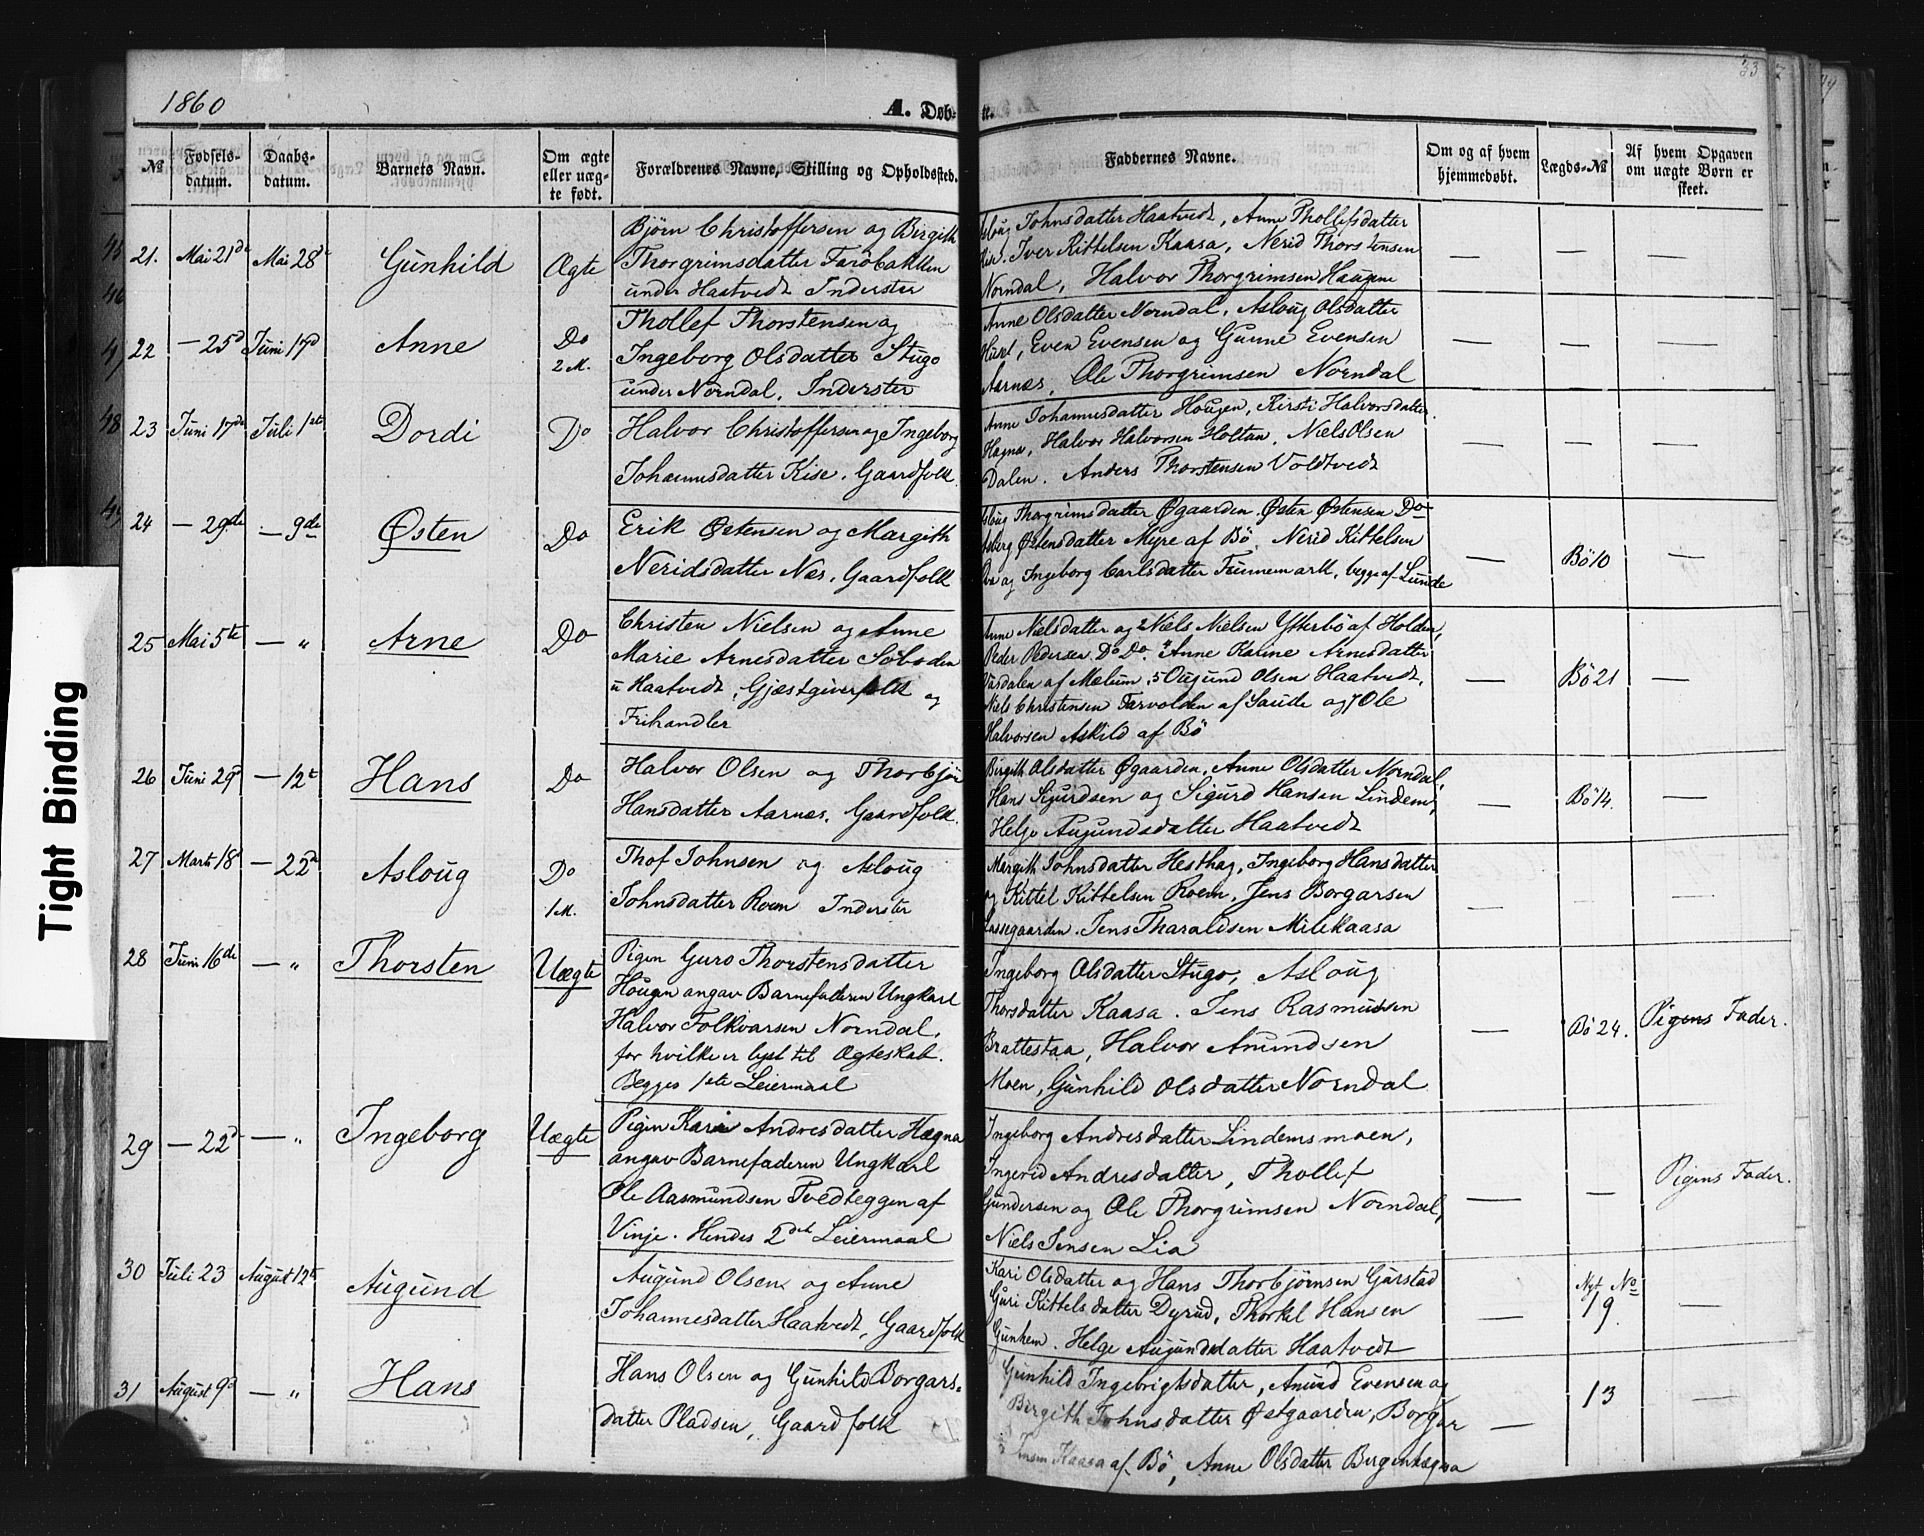 1860
A. Døb-
te.
33
№
Fødsels-
datum.
Daabs-
datum.
Barnets Navn.
Om ægte
eller uæg-
te født.
Forældrenes Navne, Stilling og Opholdssted.
Faddernes Navne.
Om og af hvem
hjemmedøbt.
Lægds-№
Af hvem Opgaven
om uægte Børn er
skeet.
21. Mai 21de Mai 28de Gunhild Ægte
Bjørn Christoffersen og Birgith
Thorgrimsdatter Farobakken
under Haatvedt Inderster
Johnsdatter Haatvedt, Anne Thollefsdatter
Kise. Iver Kittelsen Kaasa, Nerid Thorstensen
Norndal, Halvor Thorgrimsen Haugene
— — —
22 — 25d Juni 17d Anne Do
2 M.
Thollef Thorstensen og
Ingeborg Olsdatter Stugo
under Norndal, Inderster
Anne Olsdatter Norndal, Asloug Olsdatter
Even Evensen og Gunne Evensen
Aarnæs, Ole Thorgrimsen Norndal
— — —
23 Juni 17de Juli 1ste Dordi Do
Halvor Christoffersen og Ingeborg
Johannesdatter Kise. Gaardfolk.
Anne Johannesdatter Hougen, Kirsti Halvorsdatter
Hægna, Halvor Halvorsen Holtan, Niels Olsen
Dalen. Anders Thorstensen Voldtvedt
— — —
24 — 29de — 9de Østen Do
Erik Østensen og Margith
Neridsdatter Næs, Gaardfolk
Thorgrimsdatter Øgaarden. Østen Østensen Do
Østensdatter Myre af Bø. Nerid Kittelsen
og Ingeborg Carlsdatter Tunnemark, begge af Lunde
— Bø 10 —
25 Mai 5te — " Arne Do
Christen Nielsen og Anne
Marie Arnesdatter Søboden
u Haatvedt, Gjæstgiverfolk og
Frihandler
Anne Nielsdatter og 2 Niels Nielsen Ytterbø af Holden,
Peder Pedersen Do Do. Anne Karine Arnesdatter
Vasdalen af Mælum, 5 Ougund Olsen Haatvedt,
Niels Christensen Farvolden af Saude og 7 Ole
Halvorsen Askild af Bø
— Bø 21 —
26 Juni 29d — 12t Hans Do
Halvor Olsen og Thorbjør
Hansdatter Aarnæs, Gaardfolk.
Birgith Olsdatter Øgaarden, Anne Olsdatter Norndal,
Hans Sigurdsen og Sigurd Hansen Lindem,
Helge Augundsdatter Haatvedt
— Bø 14. —
27 Marts 18d — 22de Asloug Do
1 M.
Thof Johnsen og Asloug
Johnsdatter Roem Inderster
Margith Johnsdatter Hesthag, Ingeborg Hansdatter
og Kittel Kittelsen Roem, Jens Borgarsen
Jens Tharaldsen Milekaasa
— — —
28 Juni 16de — " Thorsten Uægte
Pigen Guro Thorstensdatter
Hougen angav Barnefaderen Ungkarl
Halvor Folkvarsen Norndal,
for hvilke er lyst til Ægteskab.
Begges 1ste Leiermaal
Ingeborg Olsdatter Stugo, Asloug
Thorsdatter Kaasa. Jens Rasmussen
Brattestaa, Halvor Anundsen
Moen, Gunhild Olsdatter Norndal
— Bø 24. Pigens Fader.
29 — 22d — " Ingeborg Uægte
Pigen Kari Andresdatter Hægna
angav Barnefaderen Ungkarl
Ole Aasmundsen Tvedteggen af
Vinje. Hendes 2det Leiermaal
Ingeborg Andresdatter Lindemsmoen,
Ingerid Andresdatter, Thollef
Gundersen og Ole Thorgrimsen Norndal,
Niels Jensen Lia
— — Pigens Fader.
30 Juli 23 August 12te Augund
Augund Olsen og Anne
Johannesdatter Haatvedt, Gaardfolk
Kari Olsdatter og Hans Thorbjørnsen Garstad
Guri Kittelsdatter Dyrud, Thorkel Hansen
Gunhem. Helge Augundsdatter Haatvedt
— Nyt No
19. —
31 August 9d — " Hans
Hans Olsen og Gunhild Borgars-
datter Pladsen, Gaardfolk
Gunhild Ingebrigtsdatter, Anund Evensen og
Bergith Johnsdatter Østgaarden, Borgar
Jensen Kaasa af Bø, Anne Olsdatter Bergenhægna
— 13 —
Tight Binding